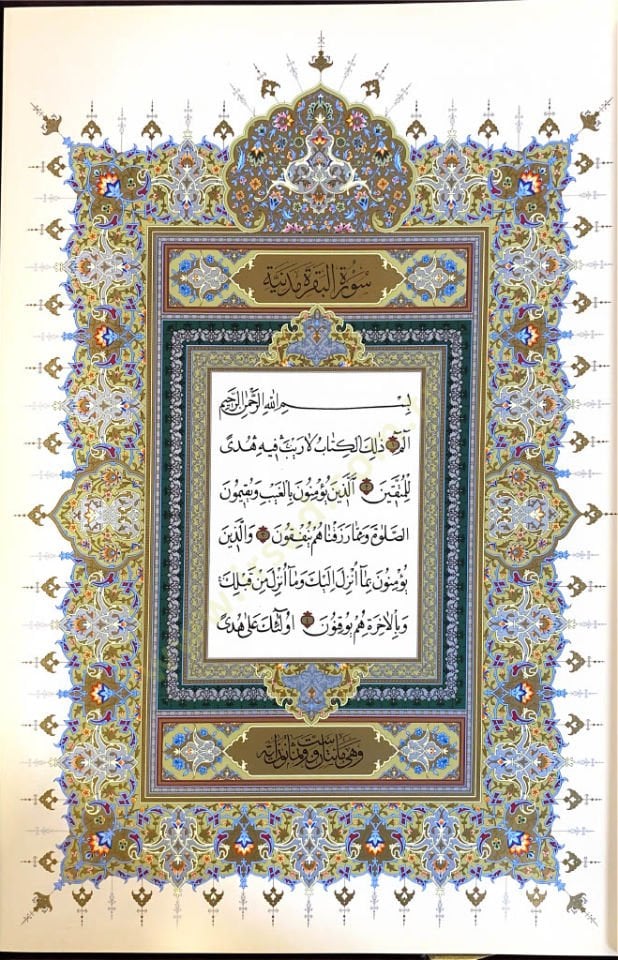 سُورَةُ الْبَقَرَةِ مَدَنِيَّة
بِسْمِ اللّٰهِ الرَّحْمٰنِ الرَّحِيمِ
الٓمٓ ۝ ذٰلِكَ الْكِتَابُ لَا رَيْبَ فِيهِ هُدًى
لِلْمُتَّقِينَ ۝ اَلَّذِينَ يُؤْمِنُونَ بِالْغَيْبِ وَيُقِيمُونَ
الصَّلٰوةَ وَمِمَّا رَزَقْنَاهُمْ يُنْفِقُونَ ۝ وَالَّذِينَ
يُؤْمِنُونَ بِمَٓا اُنْزِلَ اِلَيْكَ وَمَٓا اُنْزِلَ مِنْ قَبْلِكَ
وَبِالْاٰخِرَةِ هُمْ يُوقِنُونَ ۝ اُولٰٓئِكَ عَلٰى هُدًى
وَهِيَ مِائَتَانِ وَسِتٌّ وَثَمَانُونَ اٰيَة